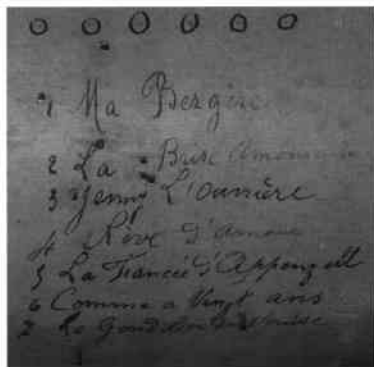 1 Ma Bergère
2 La Brise Amoureuse
3 Jenny L'ouvrière
4 Rêve D'amour
5 La Fiancée d'Appenzell
6 Comme a Vingt ans
7 Le Gondolier